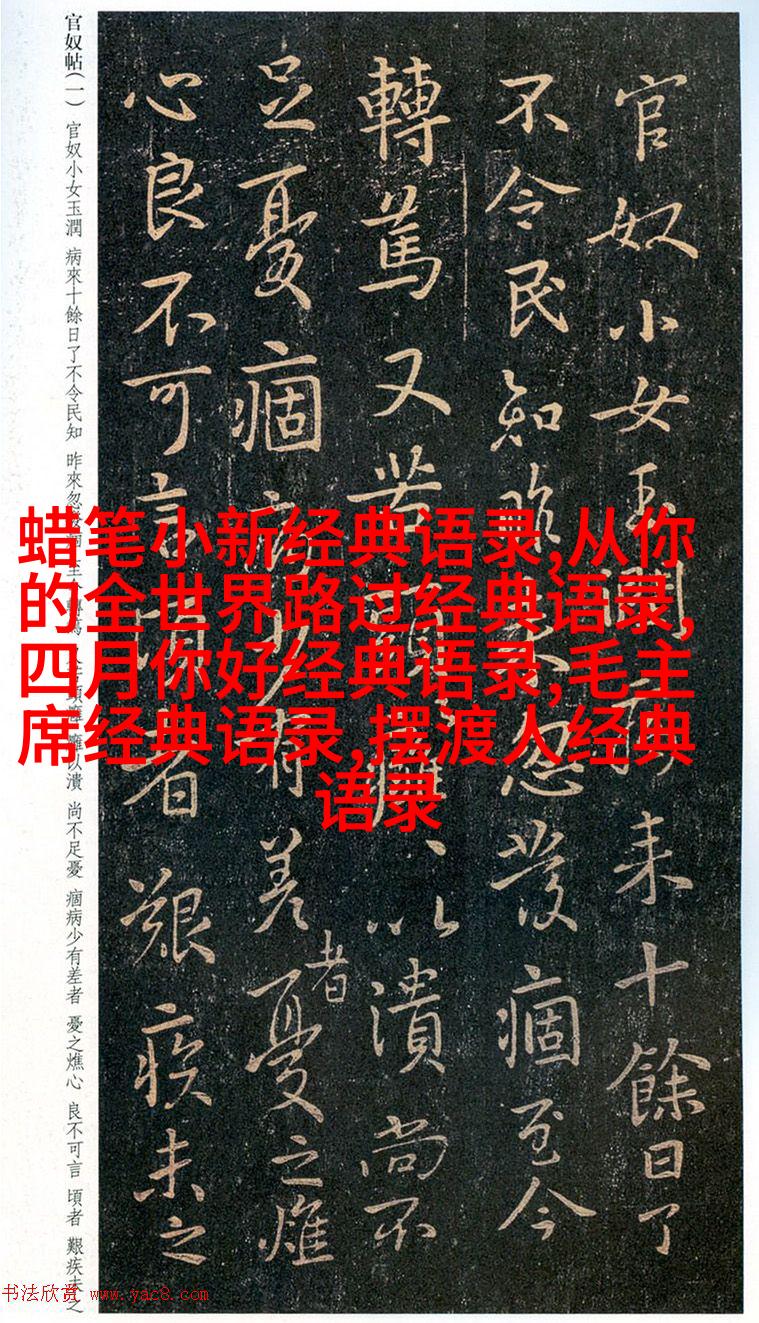 官奴小女玉潤病来十餘日了
不令民知昨来忽發痼至今
轉篤又苦頭癰癰以潰尚不
足憂痼病少有差者憂之燋
心良不可言頃者艱疾未之
官奴帖(一) 官奴小女玉潤 病來十餘日了不令民知 昨來忽發痼至今轉篤 又苦頭癰 癰以潰 尚不足憂 痼病少有差者 憂之燋心 良不可言 頃者 艱疾未之
蜡笔小新经典语录,从你
的全世界路过经典语录,
四月你好经典语录,毛主
席经典语录,摆渡人经典
语录
书法欣赏 www.yac8.com